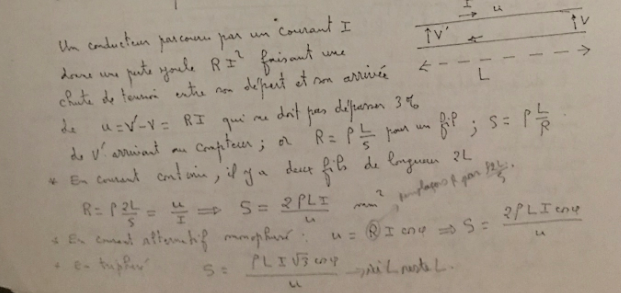 Un conducteur parcouru par un courant I
donne une perte joule RI² faisant une
chute de tension entre son départ et son arrivée
de u = V' - V = RI qui ne doit pas dépasser 3%
de V' arrivant au compteur ; or R = ρ L/S pour un fil ; S = ρ L/R
* En courant continu, il y a deux fils de longueur 2L
R = ρ 2L/S = u/I ⟹ S = 2ρLI/u mm² remplaçons R par ρ2L/S.
* En courant alternatif monophasé : u = R I cosφ ⟹ S = 2ρLI cosφ/u
* En triphasé S = ρLI√3 cosφ/u ici L reste L.
I u
V' V
L